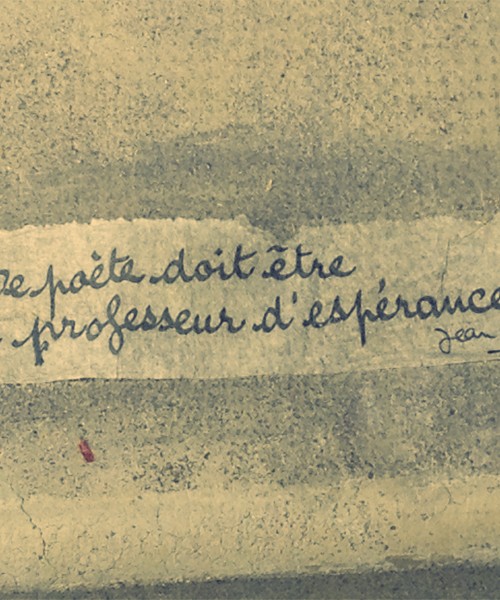 Le poète doit être
professeur d'espérance
Jean